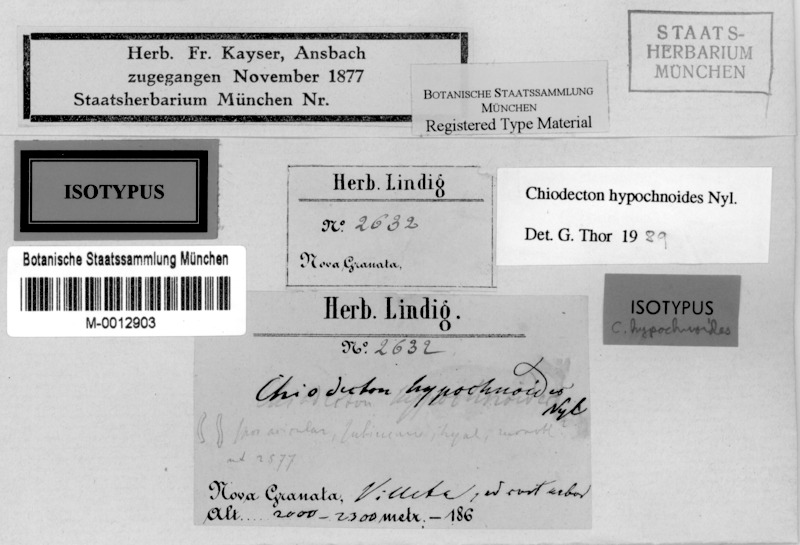 Herb. Fr. Kayser, Ansbach
zugegangen November 1877
Staatsherbarium München Nr.
BOTANISCHE STAATSSAMMLUNG
MÜNCHEN
Registered Type Material
STAATS-
HERBARIUM
MÜNCHEN
ISOTYPUS
Botanische Staatssammlung München
M-0012903
Herb. Lindig
No. 2632
Nova Granata,
Chiodecton hypochnoides Nyl.
Det. G. Thor 1989
ISOTYPUS
C. hypochnoides
Herb. Lindig.
No. 2632
Chiodecton hypochnoides
Nyl
2577
Nova Granata, Villeta, ad cort arbor
Alt.... 2000-2300 metr. - 186